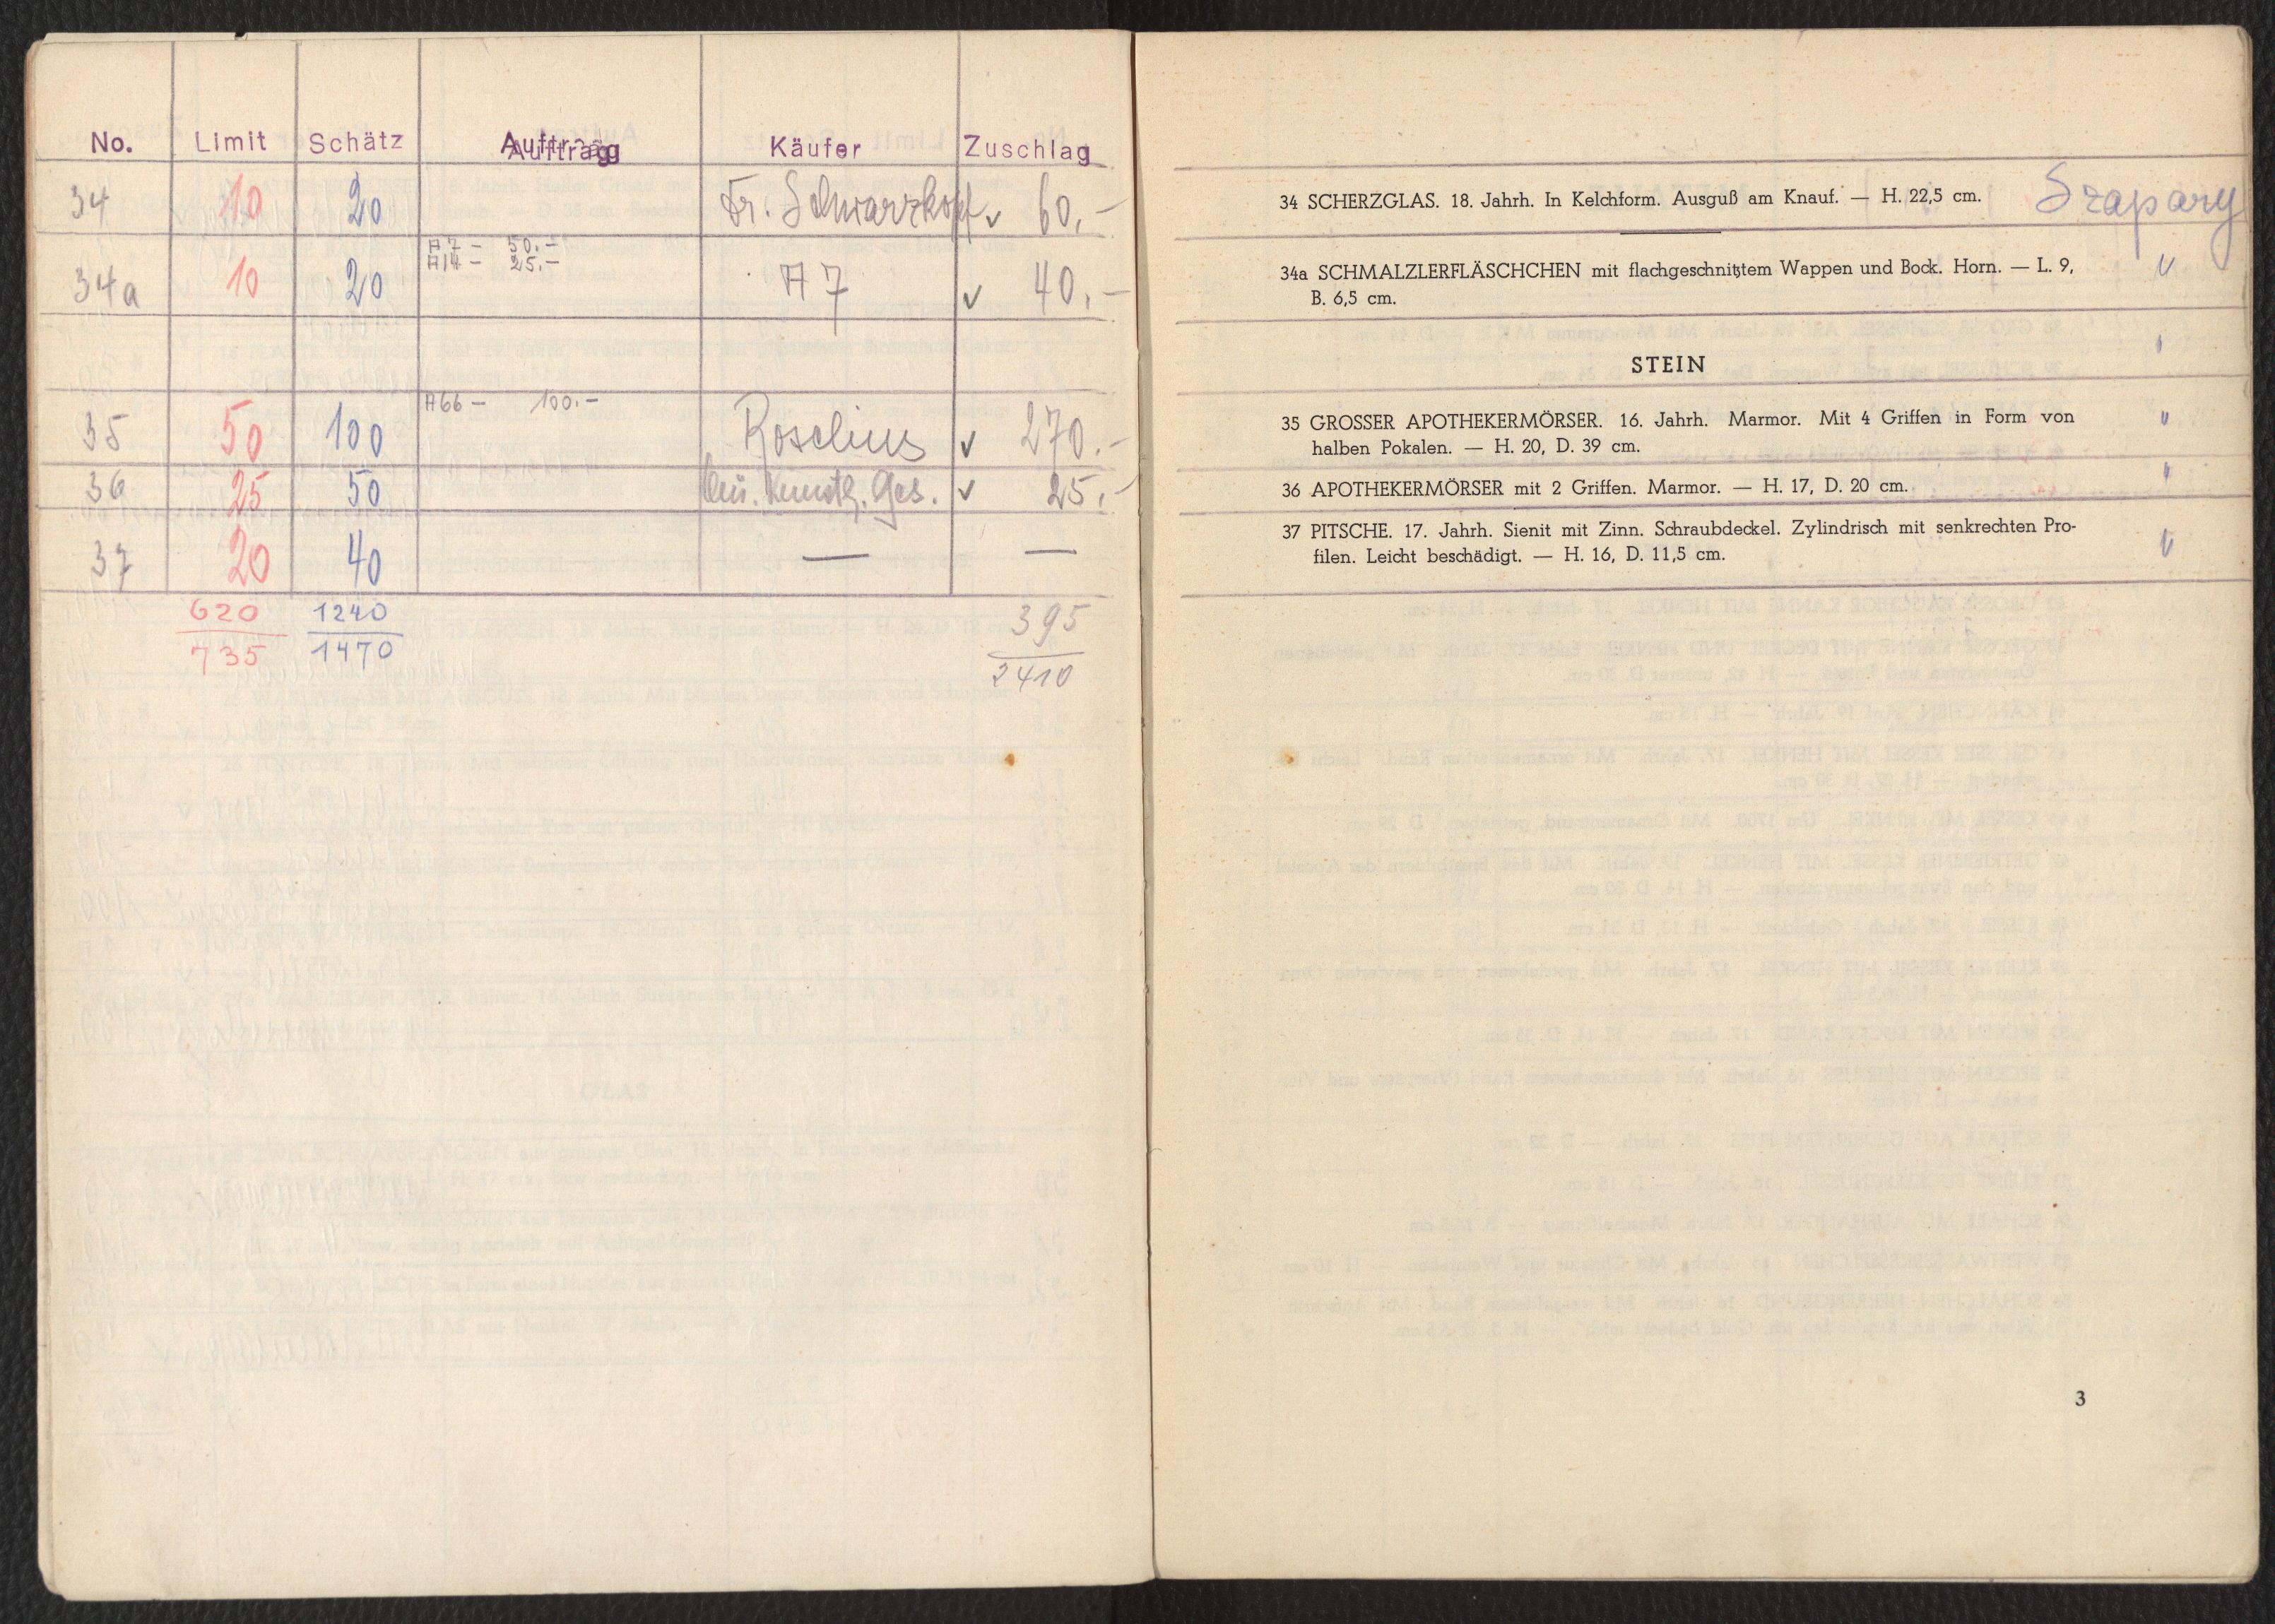 No. Limit Schätz Aufträg Käufer Zuschlag
34 10 20 Fr. Schwarzkopf ✓ 60.-
A7 - 50.-
A14 - 25.-
34a 10 20 A7 ✓ 40.-
A66 - 100.-
35 50 100 Roselius ✓ 270.-
36 25 50 Kunsth. Ges. ✓ 25.-
37 20 40 — —
620 1240 395
735 1470 2410
34 SCHERZGLAS. 18. Jahrh. In Kelchform. Ausguß am Knauf. — H. 22,5 cm. Szapary
34a SCHMALZLERFLÄSCHCHEN mit flachgeschnitztem Wappen und Bock. Horn. — L. 9, "
B. 6,5 cm.
STEIN
35 GROSSER APOTHEKERMÖRSER. 16. Jahrh. Marmor. Mit 4 Griffen in Form von "
halben Pokalen. — H. 20, D. 39 cm.
36 APOTHEKERMÖRSER mit 2 Griffen. Marmor. — H. 17, D. 20 cm. "
37 PITSCHE. 17. Jahrh. Sienit mit Zinn. Schraubdeckel. Zylindrisch mit senkrechten Pro- "
filen. Leicht beschädigt. — H. 16, D. 11,5 cm.
3